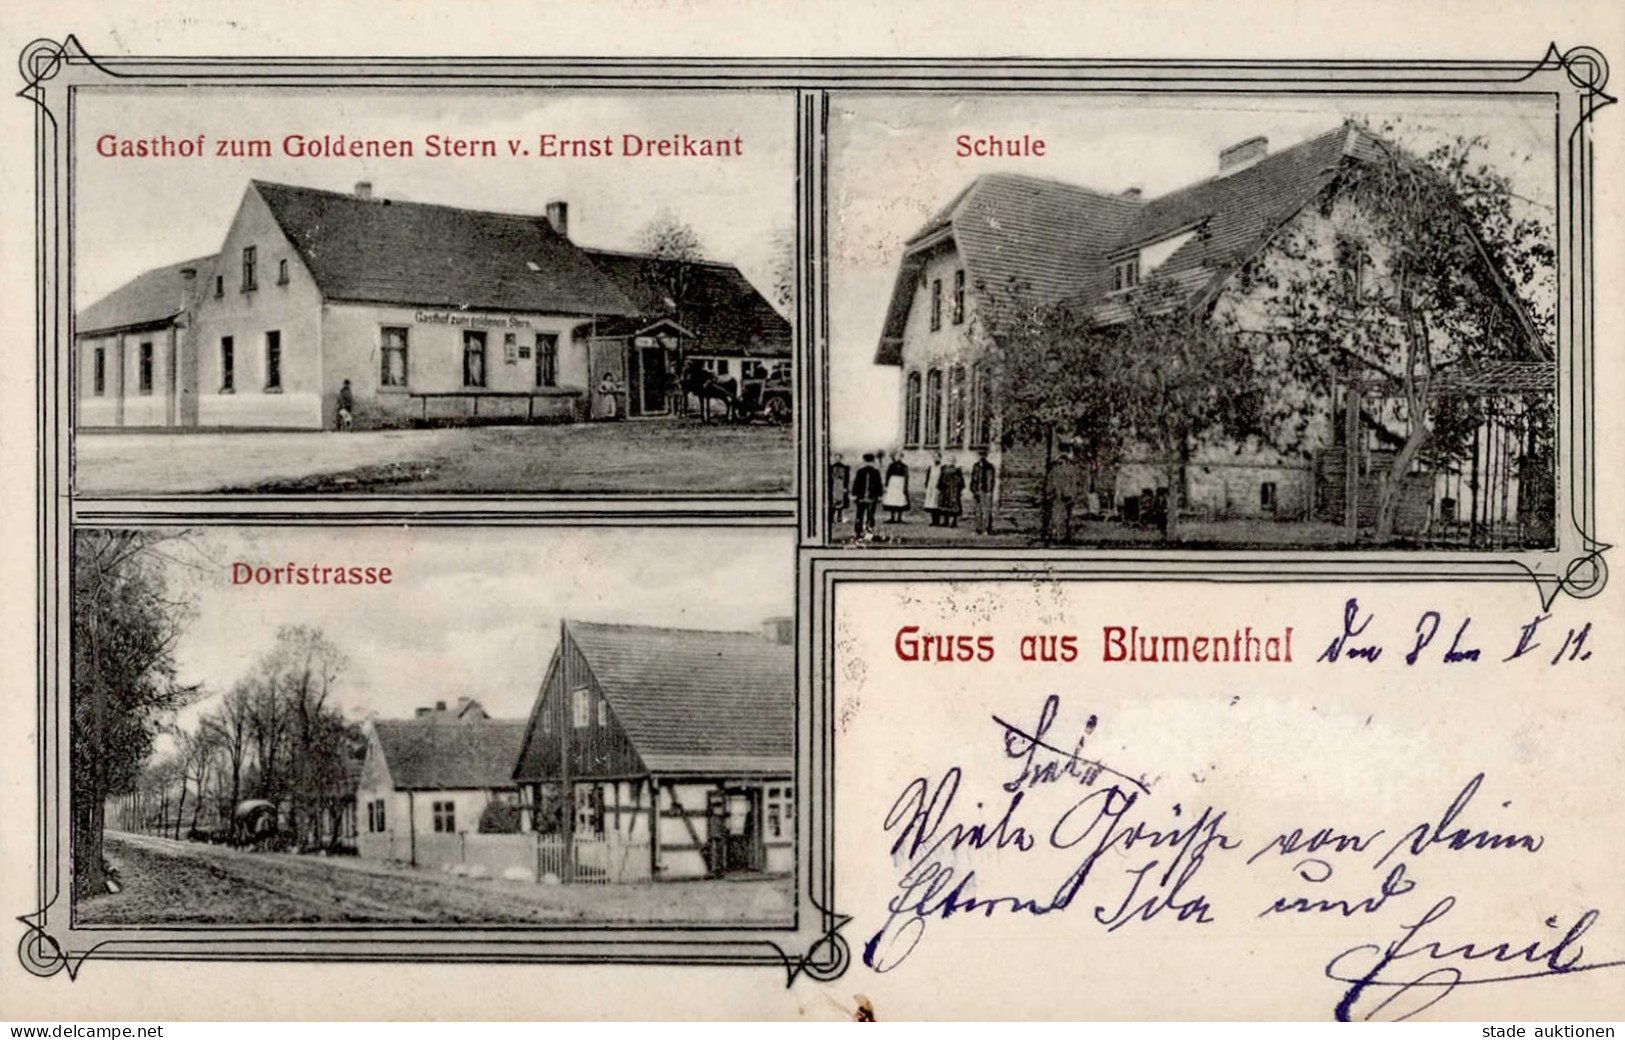 Gasthof zum Goldenen Stern v. Ernst Dreikant
Gasthof zum goldenen Stern.
Schule
Dorfstrasse
Gruss aus Blumenthal den 8ten II 11.
Viele Grüße von deine
Eltern Ida und
Emil
www.delcampe.net
stade auktionen